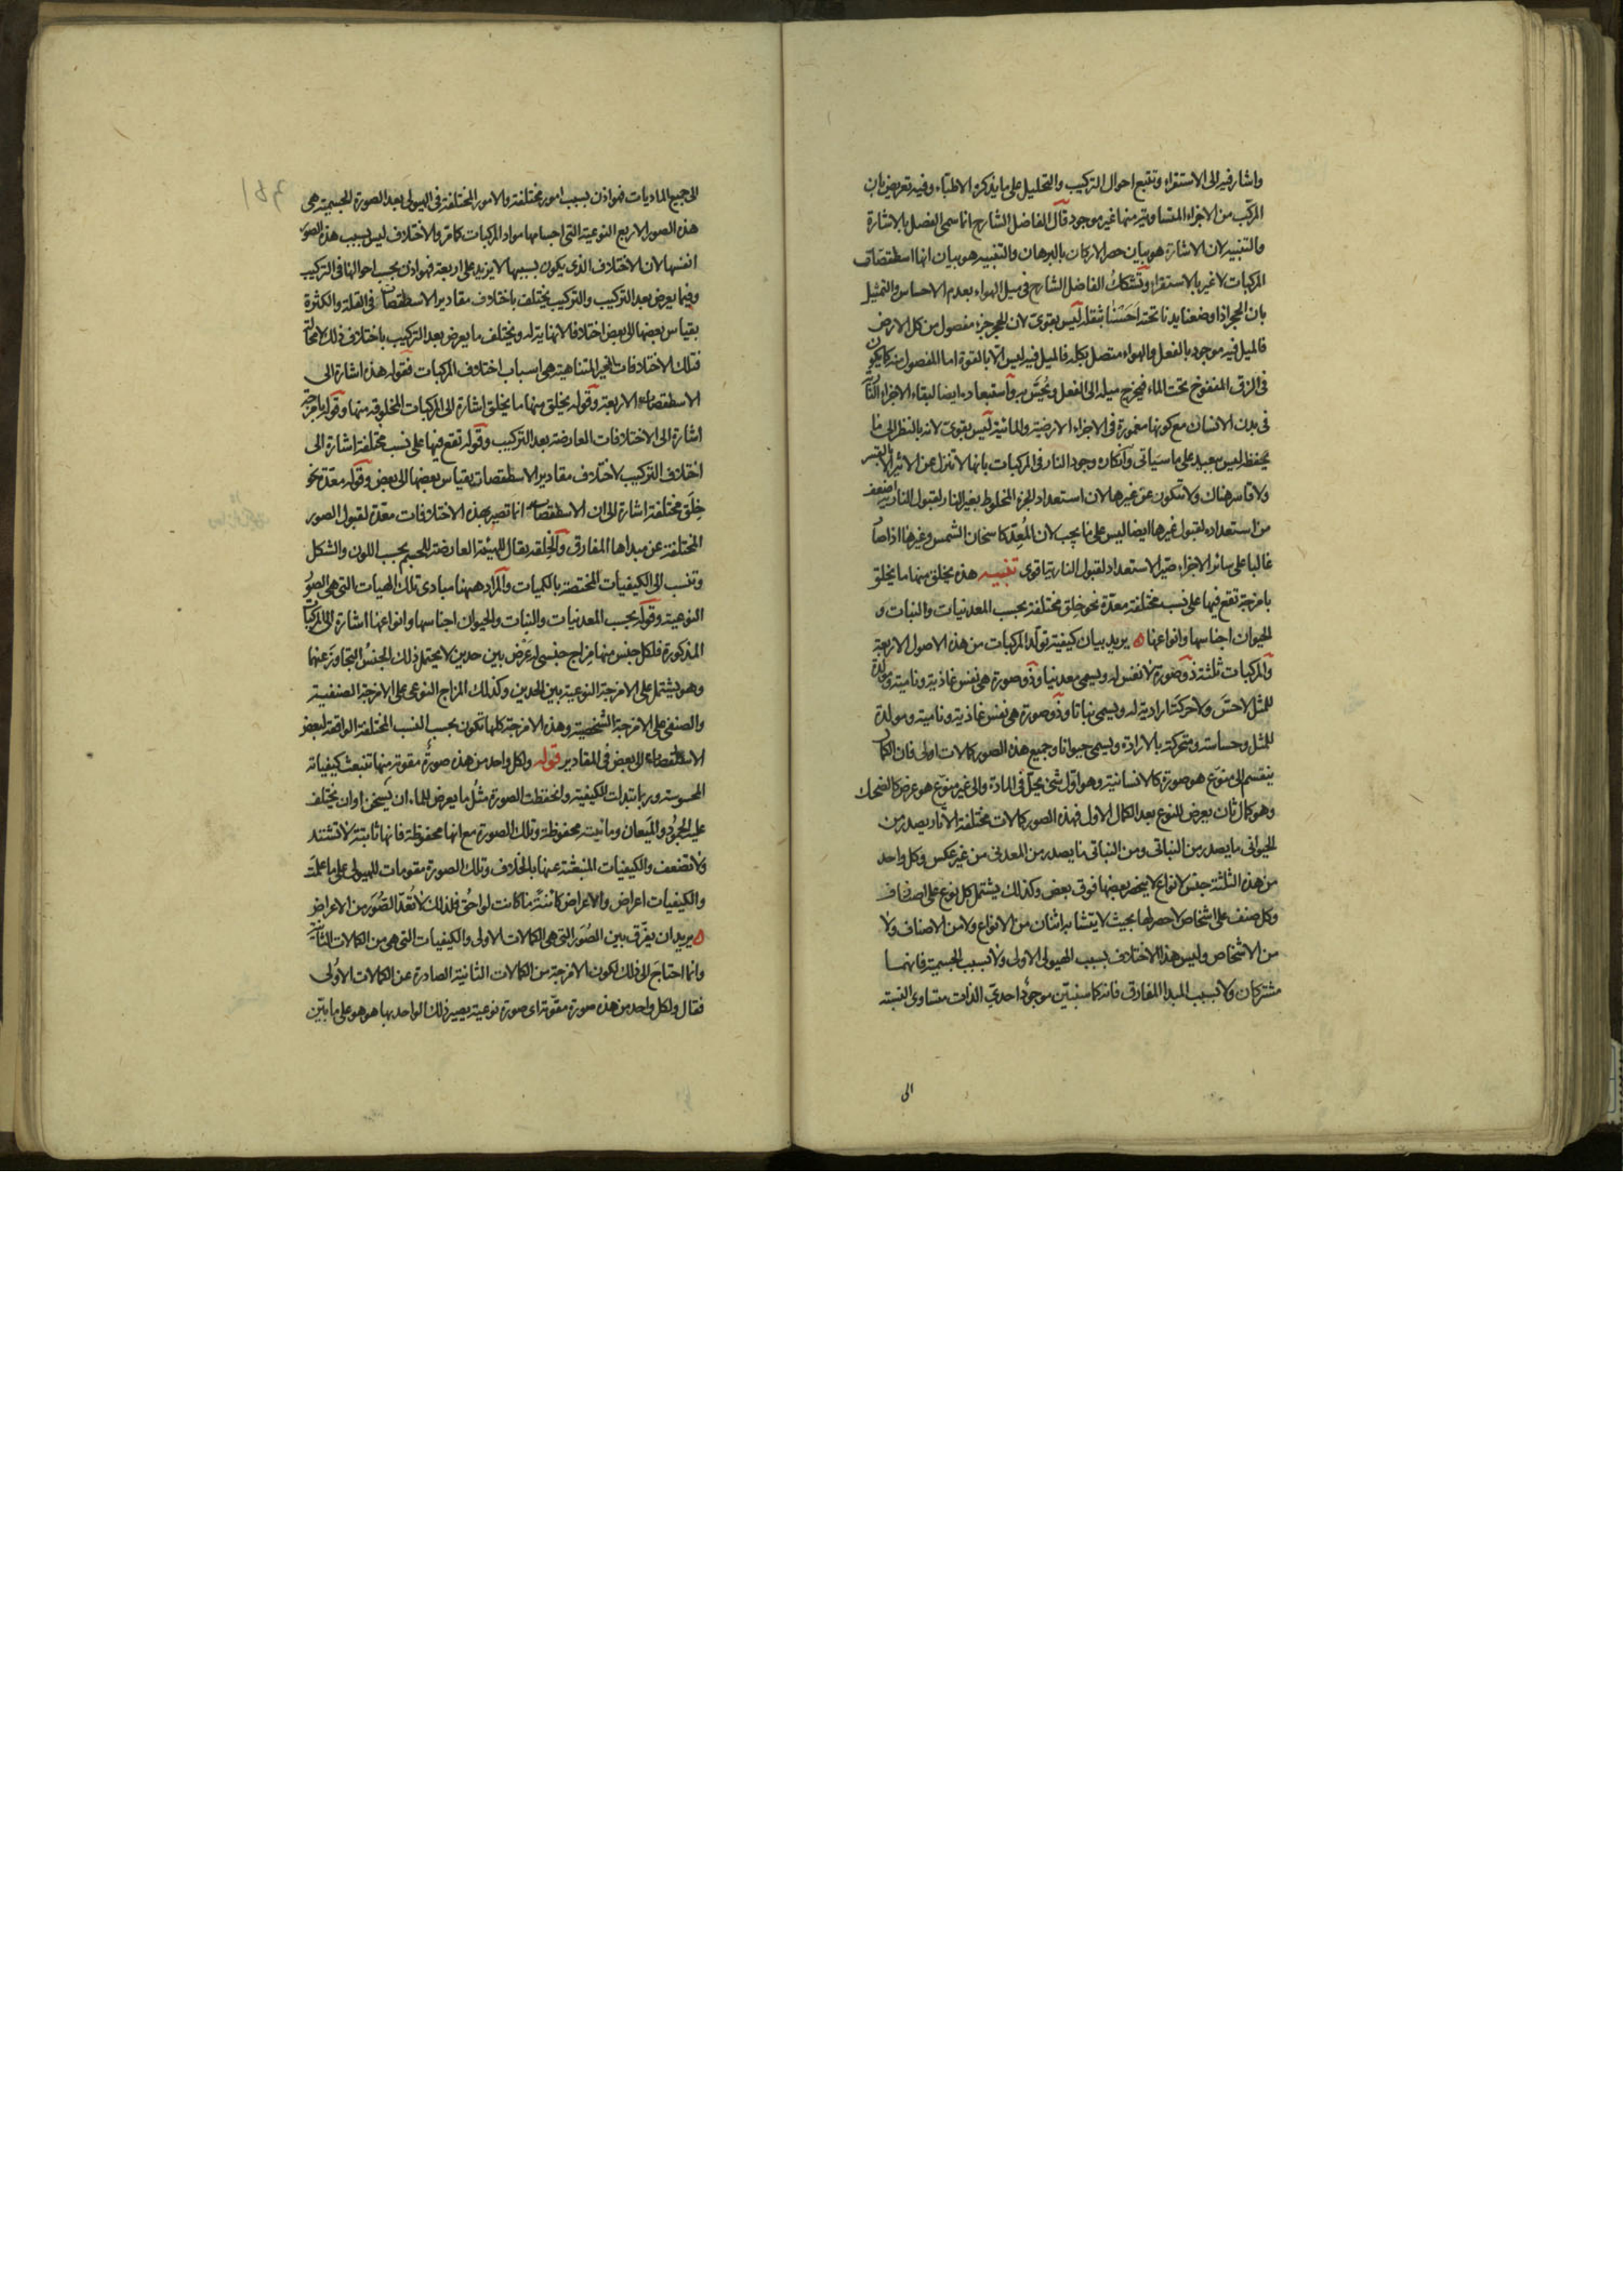 واشار فيه الى الاستقراء وتتبع احوال التركيب والتحليل على ما يذكره الاطباء وفيه تعريض بان
المركب من الاجزاء المتساوية منها غير موجود قال الفاضل الشارح انما سمى الفصل بالاشارة
والتنبيه لان الاشارة هو بيان حصر الاركان بالبرهان والتنبيه هو بيان انها اسطقصات
المركبات لا غير بالاستقراء وتشكك الفاضل الشارح في ميل الهواء بعدم الاحساس والتمثيل
بان الحجر اذا وضعنا يدنا تحته احسسنا بثقله ليس بقوى لان للحجر جزء مفصول من كل الارض
فالميل فيه موجود بالفعل والهواء متصل بكله فالميل فيه ليس الا بالقوة اما المفصول منه كما يكون
فى الزق المنفوخ تحت الماء فيخرج ميله الى الفعل ويحس به واستبعاده ايضا لبقاء الاجزاء النارية
فى بدن الانسان مع كونها مغمورة فى الاجزاء الارضية والمائية ليس بقوى لانه بالنظر الى ما
يحفظه ليس ببعيد على ما سياتى وانكاره وجود النار فى المركبات بانها لا تنزل عن الاثير الا بقسر
ولا قاسر هناك ولا تتكون عن غيرها لان استعداد الجزء المخلوط بغير النار لقبول النارية اضعف
من استعداده لقبول غيرها ايضا ليس على ما يجب لان المعد كاسخان الشمس وغيرها اذا صار
غالبا على سائر الاجزاء صير الاستعداد لقبول النارية اقوى تنبيه هذه يخلق منها ما يخلق
بامزجة تقع فيها على نسب مختلفة معدة نحو خلق مختلفة بحسب المعدنيات والنبات و
الحيوان اجناسها وانواعها ه يريد بيان كيفية تولد المركبات من هذه الاصول الاربعة
والمركبات ثلثة ذو صورة لا نفس له ويسمى معدنيا وذو صورة هى نفس غاذية ونامية ومولدة
للمثل لا حس ولا حركة ارادية له ويسمى نباتا وذو صورة هى نفس غاذية ونامية ومولدة
للمثل وحساسة ومتحركة بالارادة ويسمى حيوانا وجميع هذه الصور كمالات اولى فان الكمال
ينقسم الى منوع هو صورة كالانسانية وهو اول شىء يحل فى المادة والى غير منوع هو عرض كالضحك
وهو كمال ثان يعرض للنوع بعد الكمال الاول فهذه الصور كمالات مختلفة الآثار يصدر من
الحيوانى ما يصدر من النباتى ومن النباتى ما يصدر من المعدنى من غير عكس وكل واحد
من هذه الثلثة جنس لانواع لا ينحصر بعضها فوق بعض وكذلك يشتمل كل نوع على اصناف
وكل صنف على اشخاص لا حصر لها بحيث لا يتشابه اثنان من الانواع ولا من الاصناف ولا
من الاشخاص وليس هذا الاختلاف بسبب الهيولى الاولى ولا بسبب الجسمية فانهما
مشتركان ولا بسبب المبدا المفارق فانه كما سنبين موجود احدي الذات متساوى النسبة
الى
الى جميع الماديات فهو اذن بسبب امور مختلفة والامور المختلفة فى الهيولى بعد الصورة الجسمية هى
هذه الصور الاربع النوعية التى اجسامها مواد المركبات كما مر والاختلاف ليس بسبب هذه الصور
انفسها لان الاختلاف الذى يكون بسببها لا يزيد على اربعة فهو اذن بحسب احوالها فى التركيب
وفيما يعرض بعد التركيب والتركيب يختلف باختلاف مقادير الاسطقصات فى القلة والكثرة
بقياس بعضها الى بعض اختلافا لا نهاية له ويختلف ما يعرض بعد التركيب باختلاف ذلك لا محالة
فتلك الاختلافات الغير المتناهية هى اسباب اختلاف المركبات فقوله هذه اشارة الى
الاسطقصات الاربعة وقوله يخلق منها ما يخلق اشارة الى المركبات المخلوقة منها وقوله بامزجة
اشارة الى الاختلافات العارضة بعد التركيب وقوله تقع فيها على نسب مختلفة اشارة الى
اختلاف التركيب لاختلاف مقادير الاسطقصات بقياس بعضها الى بعض وقوله معدة نحو
خلق مختلفة اشارة الى ان الاسطقصات انما تصير بهذه الاختلافات معدة لقبول الصور
المختلفة عن مبداها المفارق والخلقة يقال للهيئة العارضة للجسم بحسب اللون والشكل
وتنسب الى الكيفيات المختصة بالكميات والمراد ههنا مبادى تلك الهيات التى هى الصور
النوعية وقوله بحسب المعدنيات والنبات والحيوان اجناسها وانواعها اشارة الى المركبات
المذكورة فلكل جنس منها مزاج جنسى له عرض بين حدين لا يحتمل ذلك الجنس التجاوز عنهما
وهو يشتمل على الامزجة النوعية بين الحدين وكذلك المزاج النوعى على الامزجة الصنفية
والصنفى على الامزجة الشخصية وهذه الامزجة كلها تكون بحسب النسب المختلفة الواقعة لبعض
الاسطقصات الى بعض فى المقادير قوله ولكل واحد من هذه صورة مقومة منها تنبعث كيفياته
المحسوسة وربما تبدلت الكيفية وانحفظت الصورة مثل ما يعرض للماء ان يسخن او ان يختلف
عليه الجمود والميعان ومائيته محفوظة وتلك الصورة مع انها محفوظة فانها ثابتة لا تشتد
ولا تضعف والكيفيات المنبعثة عنها بالخلاف وتلك الصورة مقومات للهيولى على ما علمت
والكيفيات اعراض والاعراض كائنة ما كانت لواحق فلذلك لا تعد الصور من الاعراض
ه يريد ان يفرق بين الصور التى هى الكمالات الاولى والكيفيات التى هى من الكمالات الثانية
وانما احتاج الى ذلك لكون الامزجة من الكمالات الثانية الصادرة عن الكمالات الاولى
فقال ولكل واحد من هذه صورة مقومة اى صورة نوعية يصير ذلك الواحد بها هو هو على ما بين